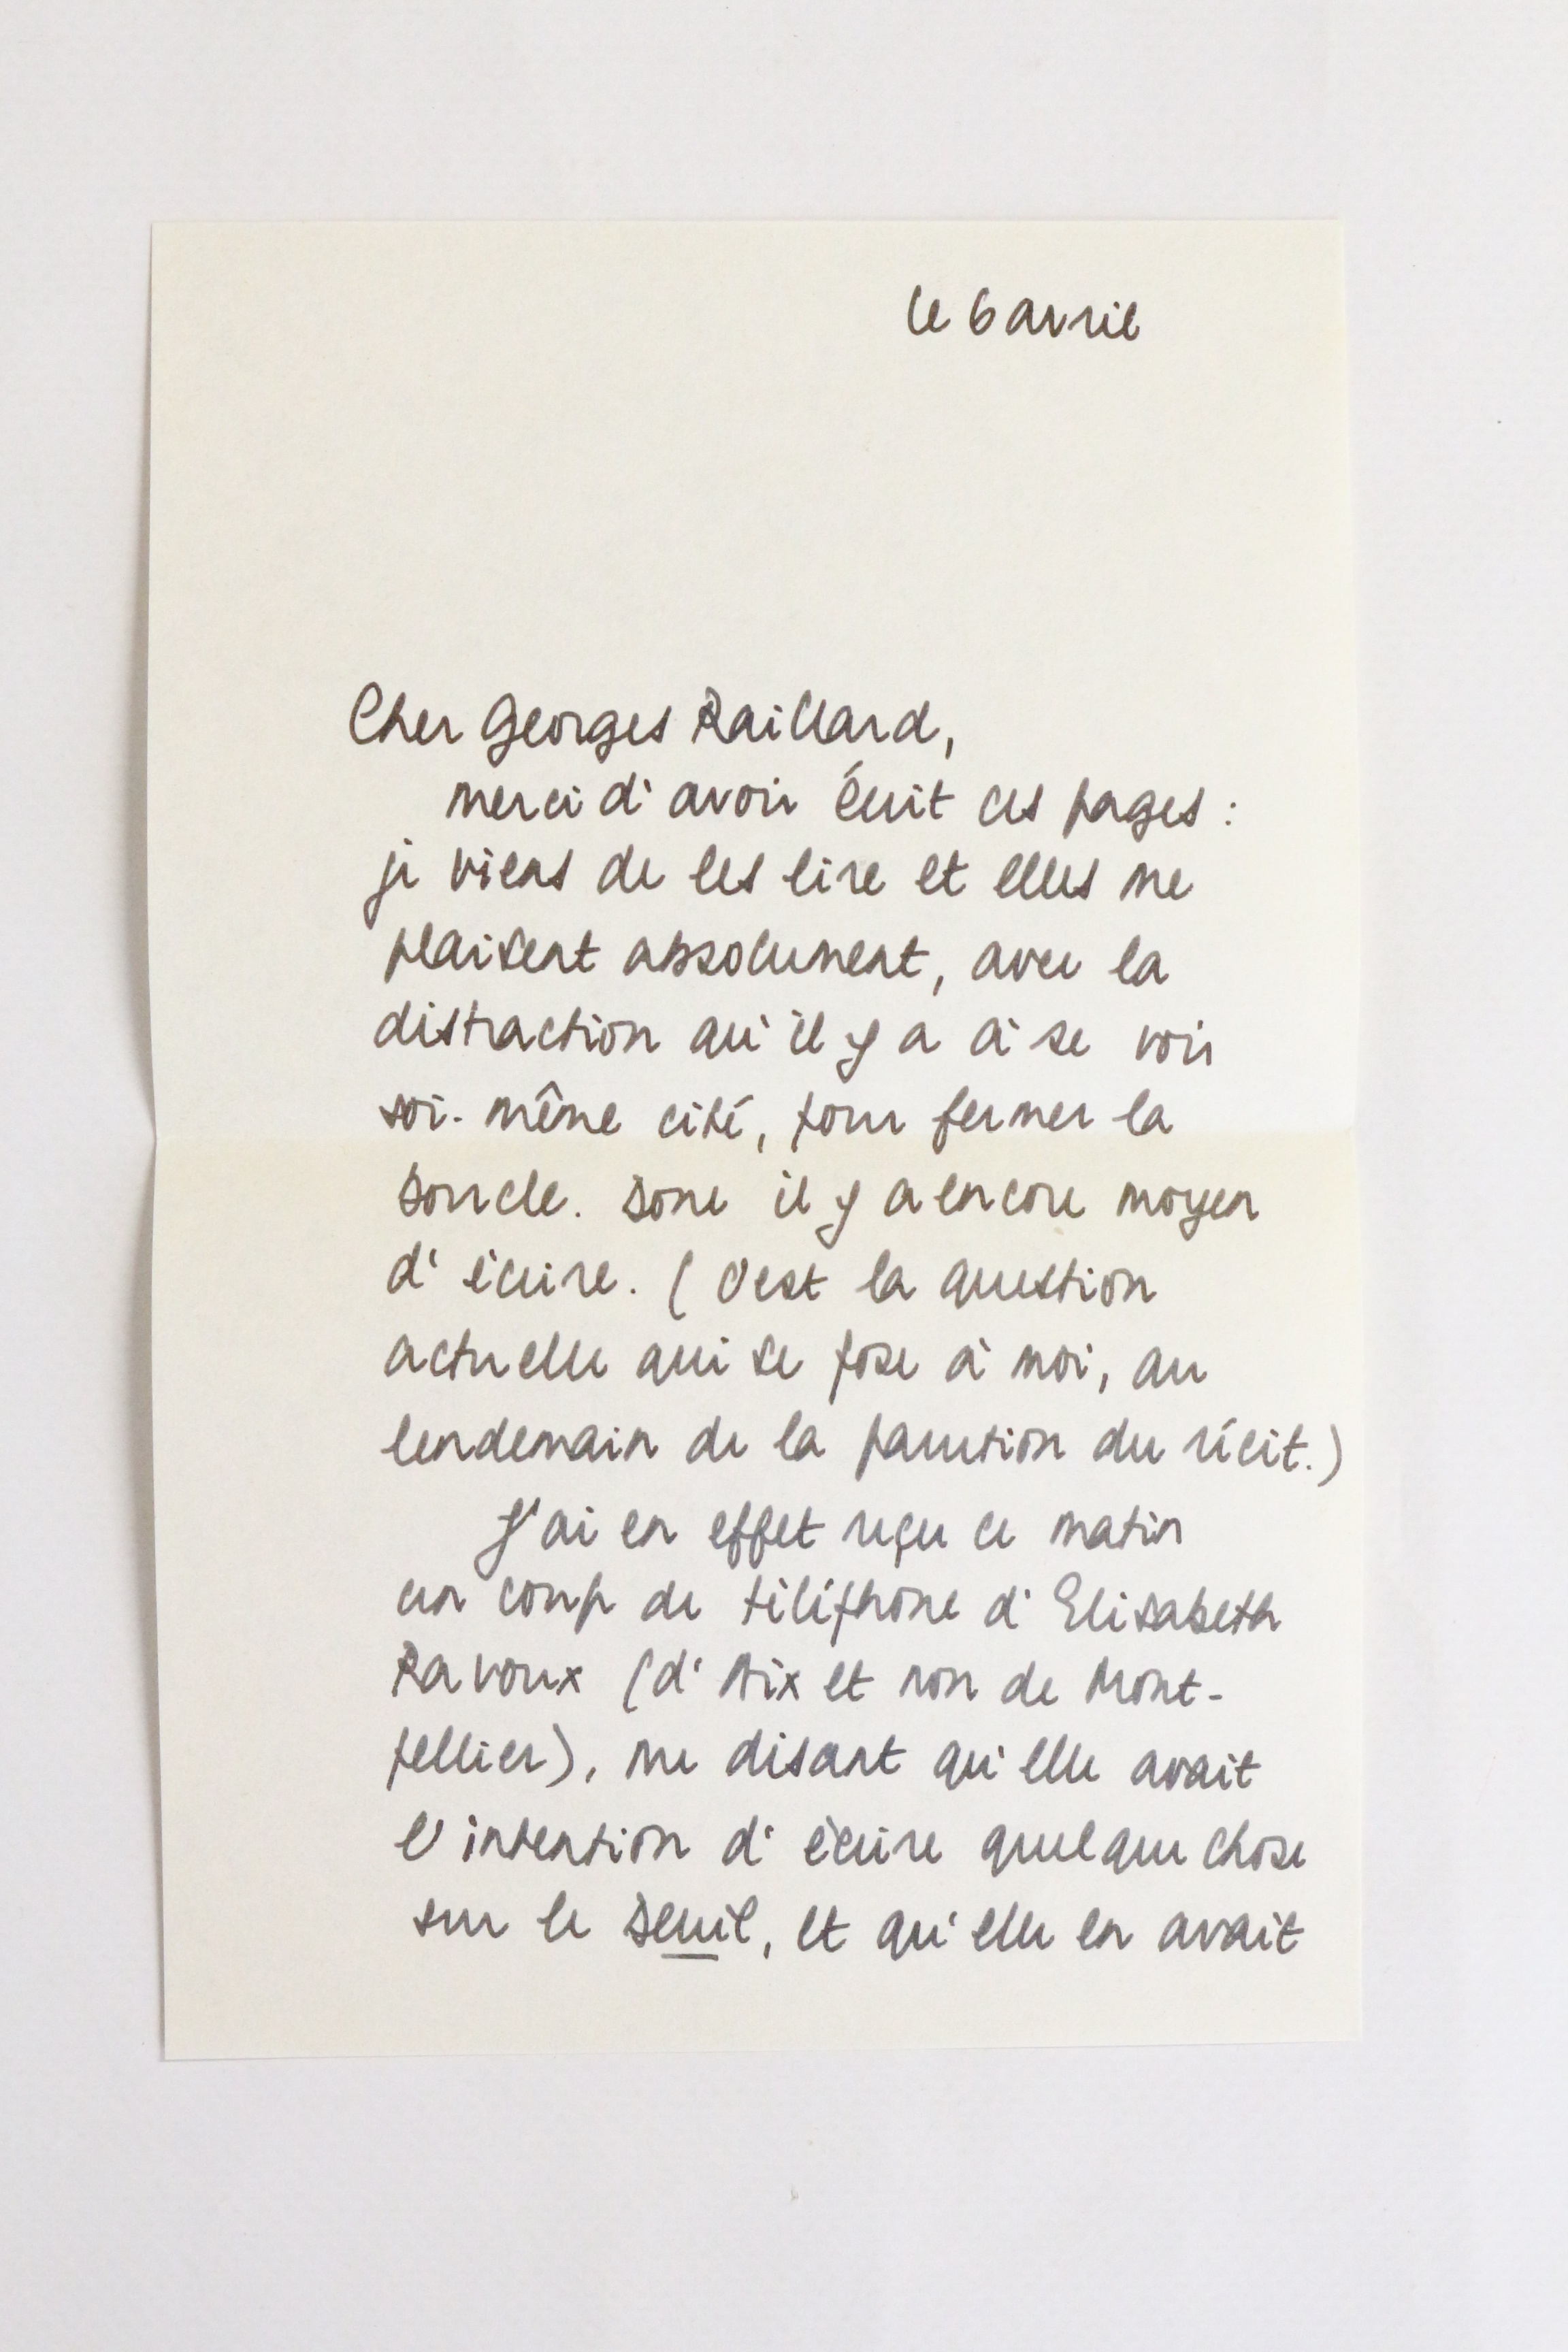 le 6 avril
Cher Georges Raillard,
merci d'avoir écrit ces pages :
je viens de les lire et elles me
plaisent absolument, avec la
distraction qu'il y a à se voir
soi-même cité, pour fermer la
boucle. Donc il y a encore moyen
d'écrire. (c'est la question
actuelle qui se pose à moi, au
lendemain de la parution du récit.)
J'ai en effet reçu ce matin
un coup de téléphone d'Elisabeth
Ravoux (d'Aix et non de Mont-
pellier), me disant qu'elle avait
l'intention d'écrire quelque chose
sur le Seuil, et qu'elle en avait